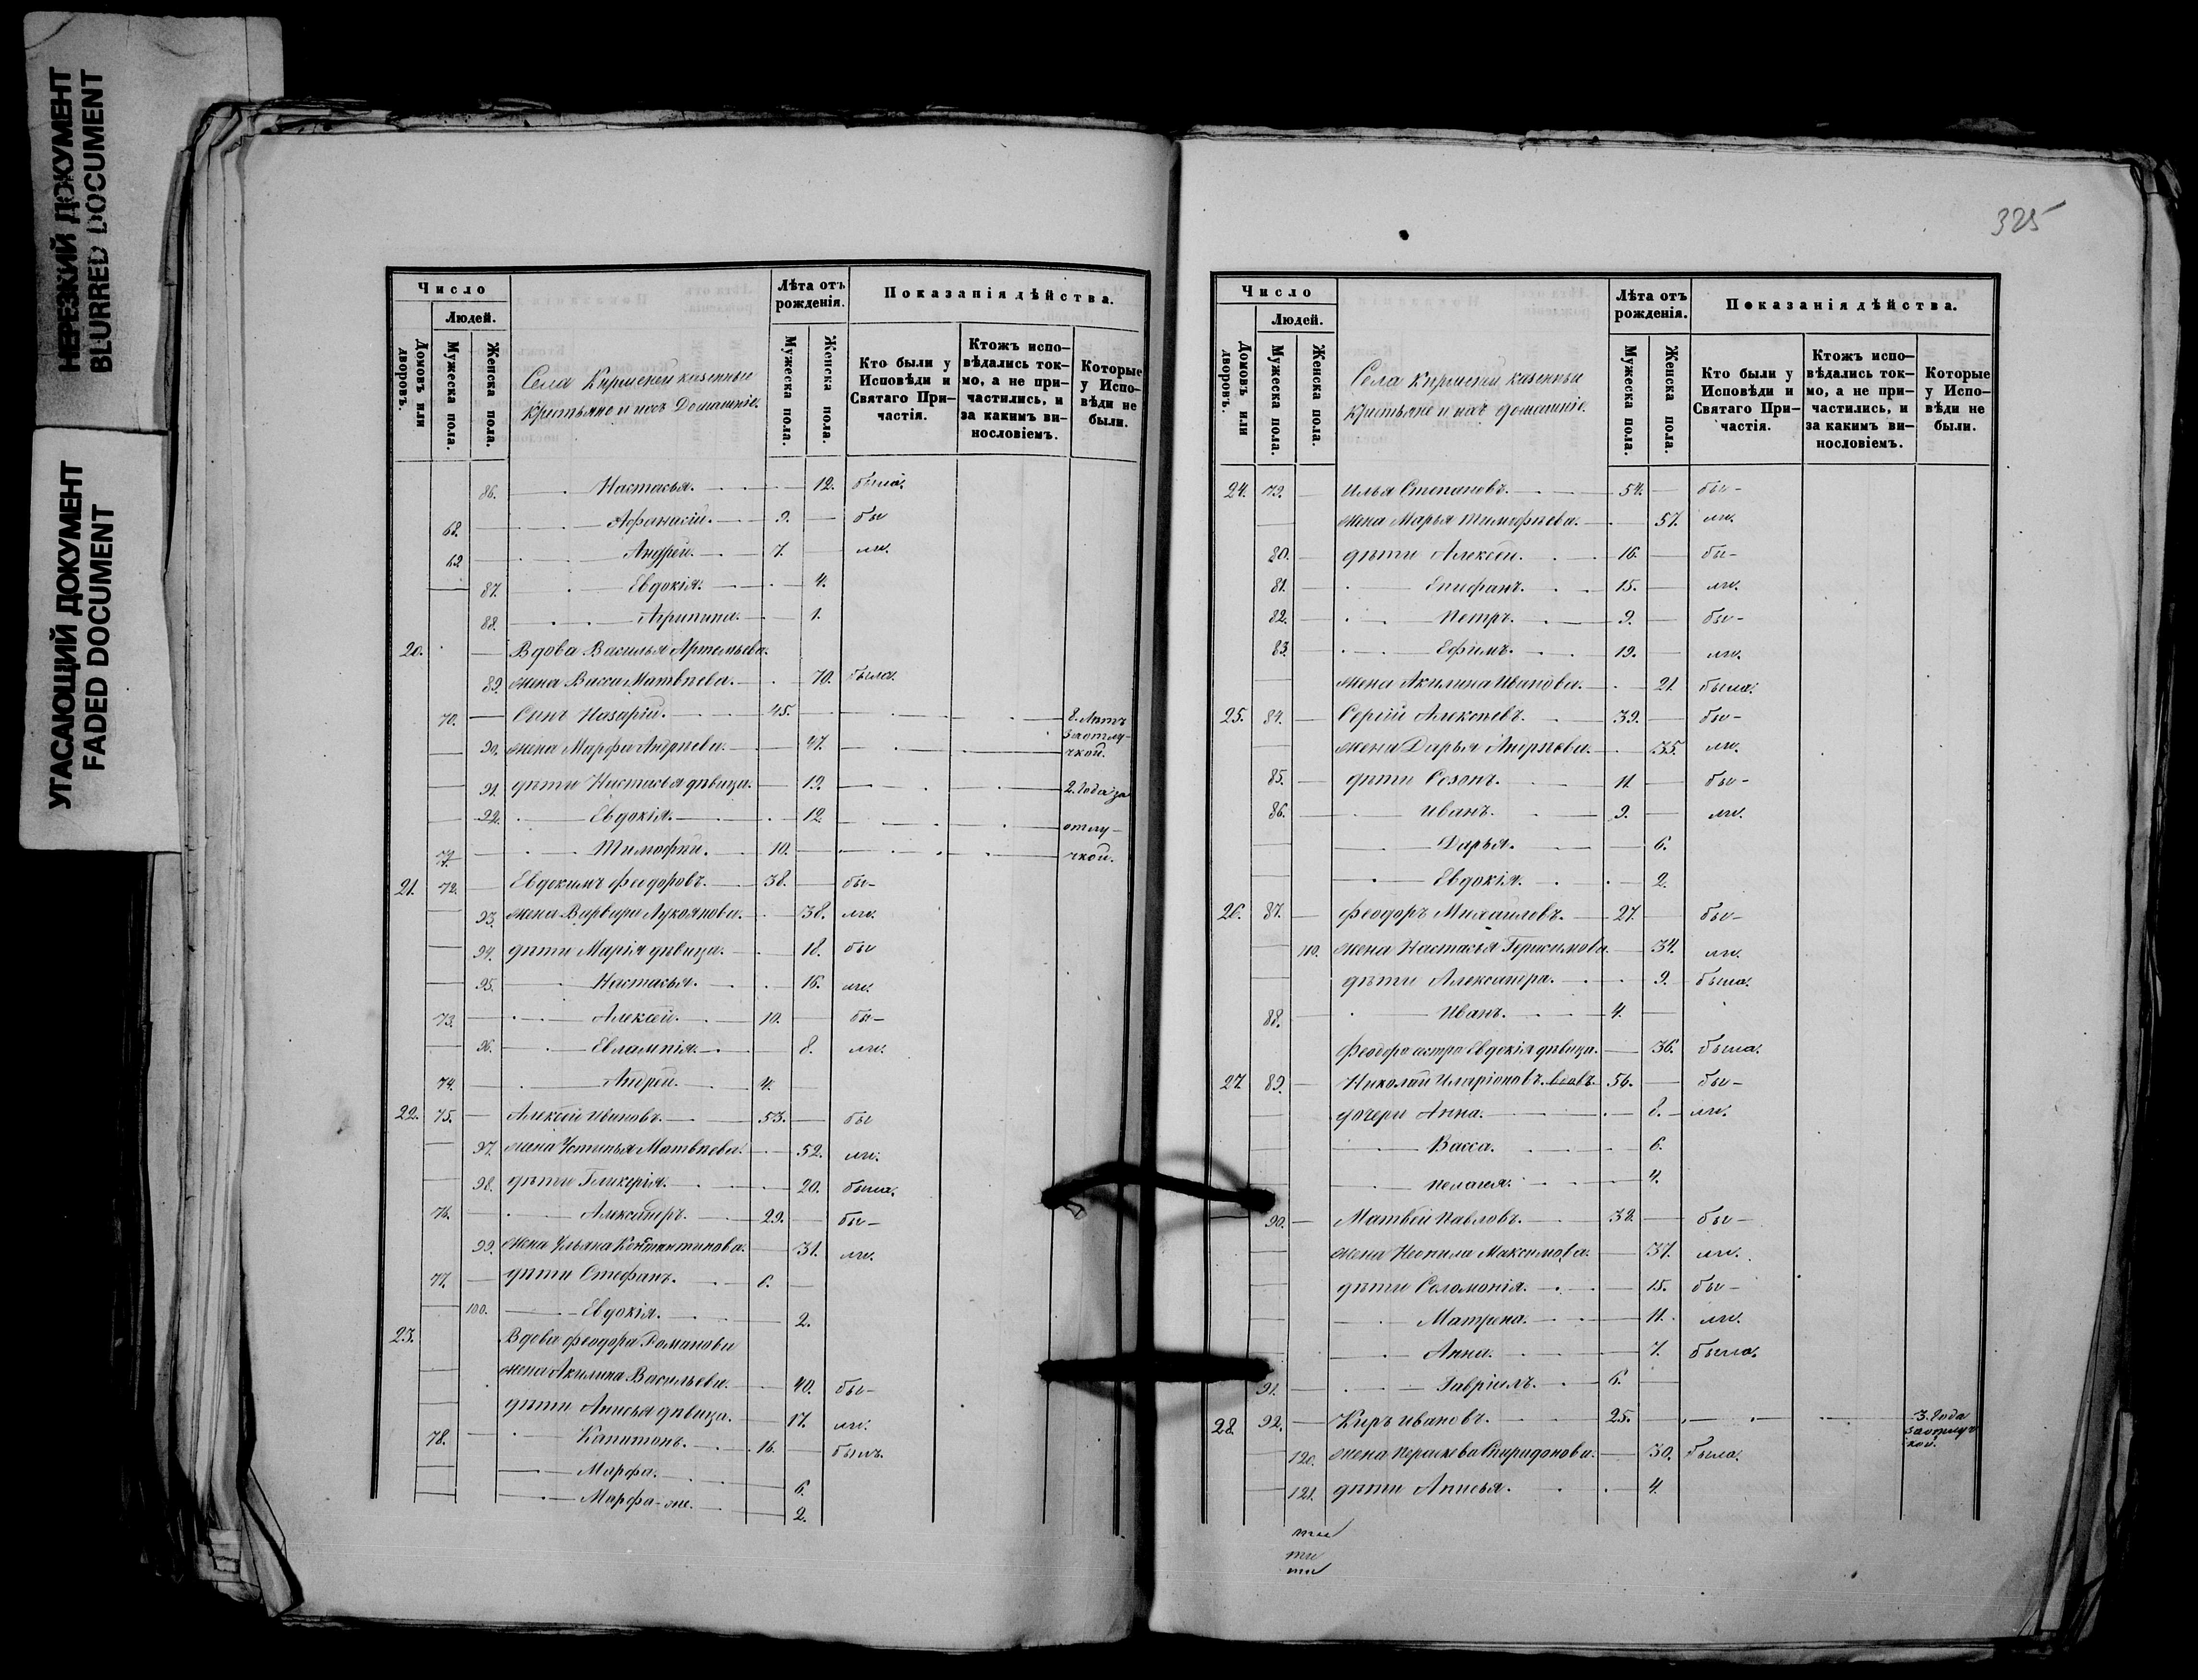 НЕРЕЗКИЙ ДОКУМЕНТ
BLURRED DOCUMENT
УГАСАЮЩИЙ ДОКУМЕНТ
FADED DOCUMENT
Число
Людей.
Домовъ или дворовъ.
Мужеска пола.
Женска пола.
Села казенныи
и ихъ Домашніе.
Лѣта отъ рожденія.
Мужеска пола.
Женска пола.
Показанія дѣйства.
Кто были у Исповѣди и Святаго Причастія.
Ктожъ исповѣдались токмо, а не причастились, и за какимъ винословіемъ.
Которые у Исповѣди не были.
86. Настасья. 12. была.
68. Афанасій. 9. бы
69 Андрей. 7. ли.
87. Евдокія. 4.
88. Агрипина. 1.
20. Вдова Василья Артемьева
89. жена Васса Матвѣева. 70. была.
70. Сынъ Назарій. 45. 8. лѣтъ
90. жена Марфа Андреева. 47. за отлу-
чкой.
91. дѣти Настасья дѣвица. 19. 2. года за
92. Евдокія. 12. отлу-
71. Тимофей. 10. чкой.
21. 72. Евдокимъ Феодоровъ. 38. бы-
93. жена Варвара Лукоянова. 38. ли.
94. дѣти Марія дѣвица. 18. бы
95. Настасья. 15. ли.
73. Алексѣй. 10. бы-
96. Евлампія. 8. ли.
74. Андрей. 4.
22. 75. Алексѣй Ивановъ. 53. бы
97. жена Устинья Матвѣева. 52. ли.
98. дѣти Гликерія. 20. была.
76. Александръ. 29. бы-
99. жена Ульяна Константинова. 31. ли.
77. дѣти Стефанъ. 6.
100. Евдокія. 2.
23. Вдова Феодора Романова
жена Акилина Васильева. 40. бы-
дѣти Анисья дѣвица. 17. ли.
78. Капитонъ. 16. былъ.
Марфа. 6.
Марфа-же. 2.
325
Число
Людей.
Домовъ или дворовъ.
Мужеска пола.
Женска пола.
Села казенныи
и ихъ домашніе.
Лѣта отъ рожденія.
Мужеска пола.
Женска пола.
Показанія дѣйства.
Кто были у Исповѣди и Святаго Причастія.
Ктожъ исповѣдались токмо, а не причастились, и за какимъ винословіемъ.
Которые у Исповѣди не были.
24. 79. Илья Степановъ. 54. бы-
жена Марья Тимофѣева. 57. ли.
80. дѣти Алексѣй. 16. бы-
81. Епифанъ. 15. ли.
82. Петръ. 9. бы-
83. Ефимъ. 19. ли.
жена Акилина Иванова. 21. была.
25. 84. Сергѣй Алексѣевъ. 39. бы-
жена Дарья Андреева. 35. ли.
85. дѣти Созонъ. 11. бы-
86. Иванъ. 9. ли.
Дарья. 6.
Евдокія. 2.
26. 87. Феодоръ Михайловъ. 27. бы-
110. жена Настасья Герасимова. 34. ли.
дѣти Александра. 9. была.
88. Иванъ. 4.
Феодора сестра Евдокія дѣвица. 36. была.
27. 89. Николай Иларіоновъ вдовъ 56. бы-
дочери Анна. 8. ли.
Васса. 6.
Пелагея. 4.
90. Матвѣй Павловъ. 38. бы-
жена Неонила Максимова. 37. ли.
дѣти Соломонія. 15. бы-
Матрена. 11. ли.
Анна. 7. была.
91. Гавріилъ. 6.
28. 92. Киръ Ивановъ. 25. 3. года
за отлуч
кой.
120. жена Параскева Спиридонова. 30. была.
121. дѣти Анисья. 4.